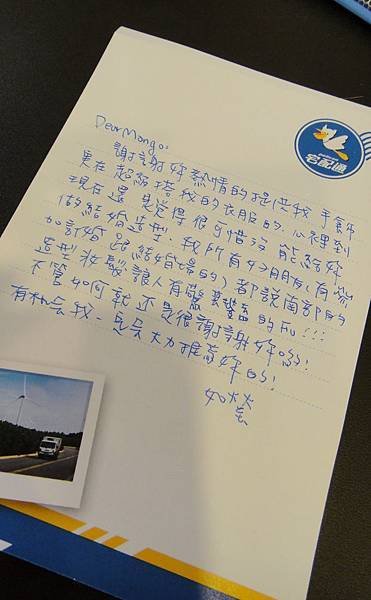 Dear Mango:
謝謝妳熱情的提供我手飾
更在超級搭我的衣服的,心裡到
現在還是覺得很可惜沒能給妳
做結婚造型.我所有好朋友(有參
加訂婚跟結婚場的)都說南部的
造型妝髮讓人有驚豔的fu!!!
不管如何就还是很謝謝妳喲!
有机会我一定會大力推薦妳的!
如
宅配通